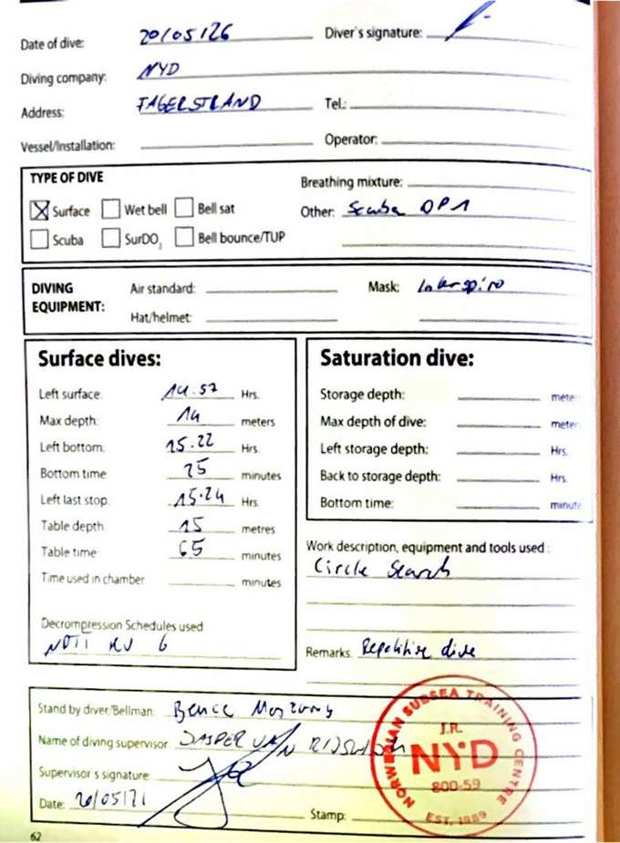 Date of dive: 20/05/26 Diver's signature:
Diving company: NYD
Address: FAGERSTRAND Tel.:
Vessel/Installation: Operator:
TYPE OF DIVE Breathing mixture:
Surface Wet bell Bell sat Other: Scuba OP1
Scuba SurDO2 Bell bounce/TUP
DIVING EQUIPMENT: Air standard: Mask: Interspiro
Hat/helmet:
Surface dives:
Left surface: 14.57 Hrs.
Max depth: 14 meters
Left bottom: 15.22 Hrs.
Bottom time 25 minutes
Left last stop: 15.24 Hrs
Table depth 15 metres
Table time: 65 minutes
Time used in chamber minutes
Decrompression Schedules used
6
Saturation dive:
Storage depth: meter
Max depth of dive: meter
Left storage depth: Hrs.
Back to storage depth: Hrs.
Bottom time: minute
Work description, equipment and tools used :
Circle Search
Remarks: Repetitive dive
Stand by diver/Bellman: Bence
Name of diving supervisor JASPER VAN
Supervisor's signature:
Date: 20/05/21
Stamp:
NORWEGIAN SUBSEA TRAINING CENTRE
J.R.
NYD
800-59
EST. 1889
62